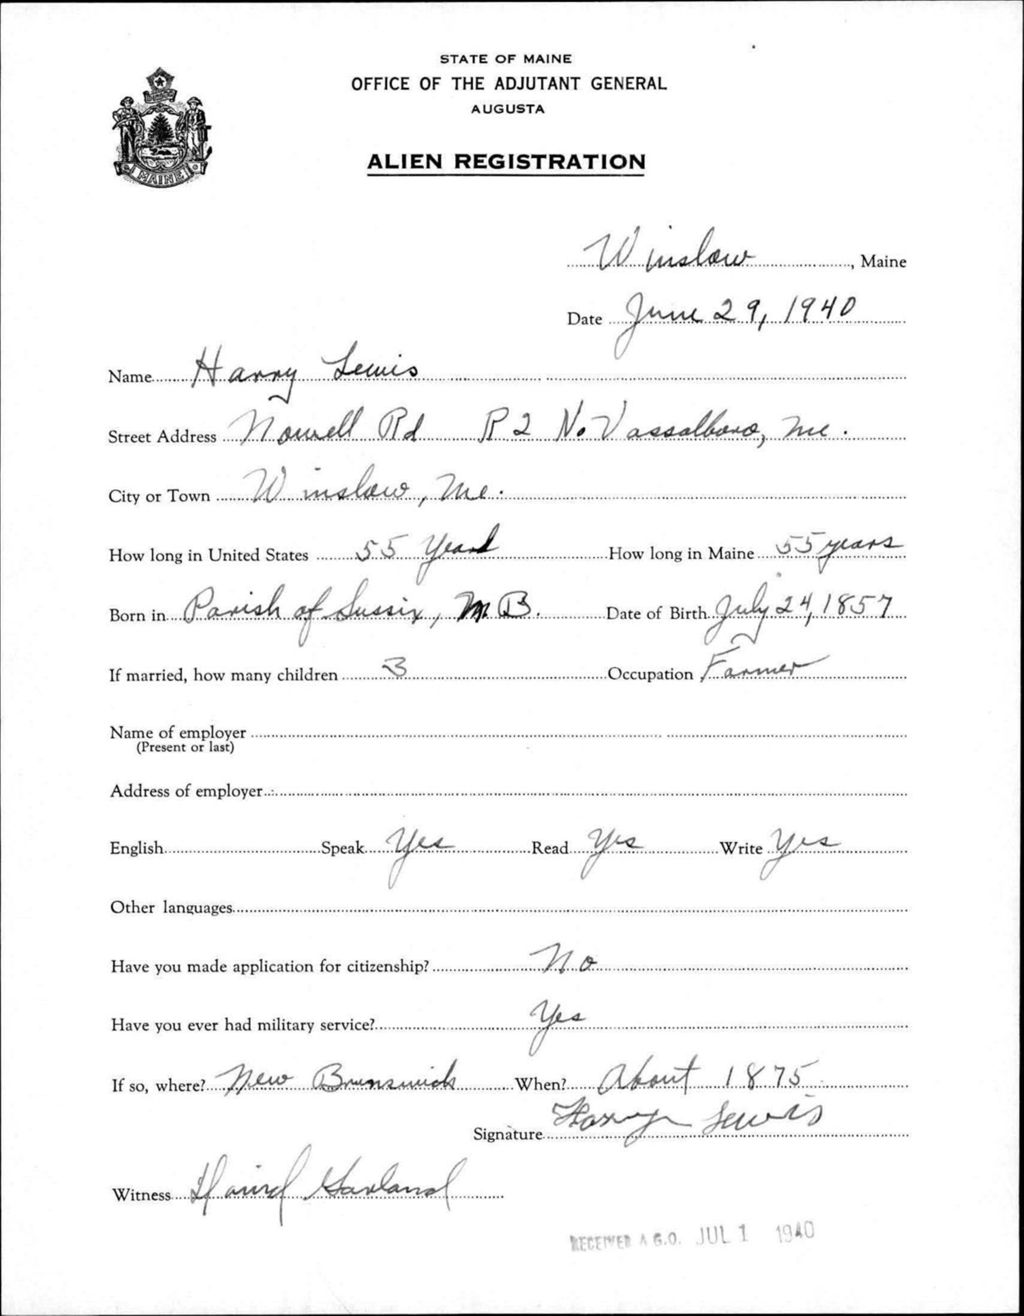 STATE OF MAINE
OFFICE OF THE ADJUTANT GENERAL
AUGUSTA
ALIEN REGISTRATION
MAINE
Winslow, Maine
Date June 29, 1940
Name Harry Lewis
Street Address Nowell Rd R2 No. Vassalboro, Me.
City or Town Winslow, Me.
How long in United States 55 Years How long in Maine 55 years
Born in Parish of Sussix, N.B. Date of Birth July 24, 1857
If married, how many children 3 Occupation Farmer
Name of employer
(Present or last)
Address of employer
English Speak Yes Read Yes Write Yes
Other languages
Have you made application for citizenship? No
Have you ever had military service? Yes
If so, where? New Brunswick When? About 1875
Signature Harry Lewis
Witness Garland
RECEIVED A.G.O. JUL 1 1940